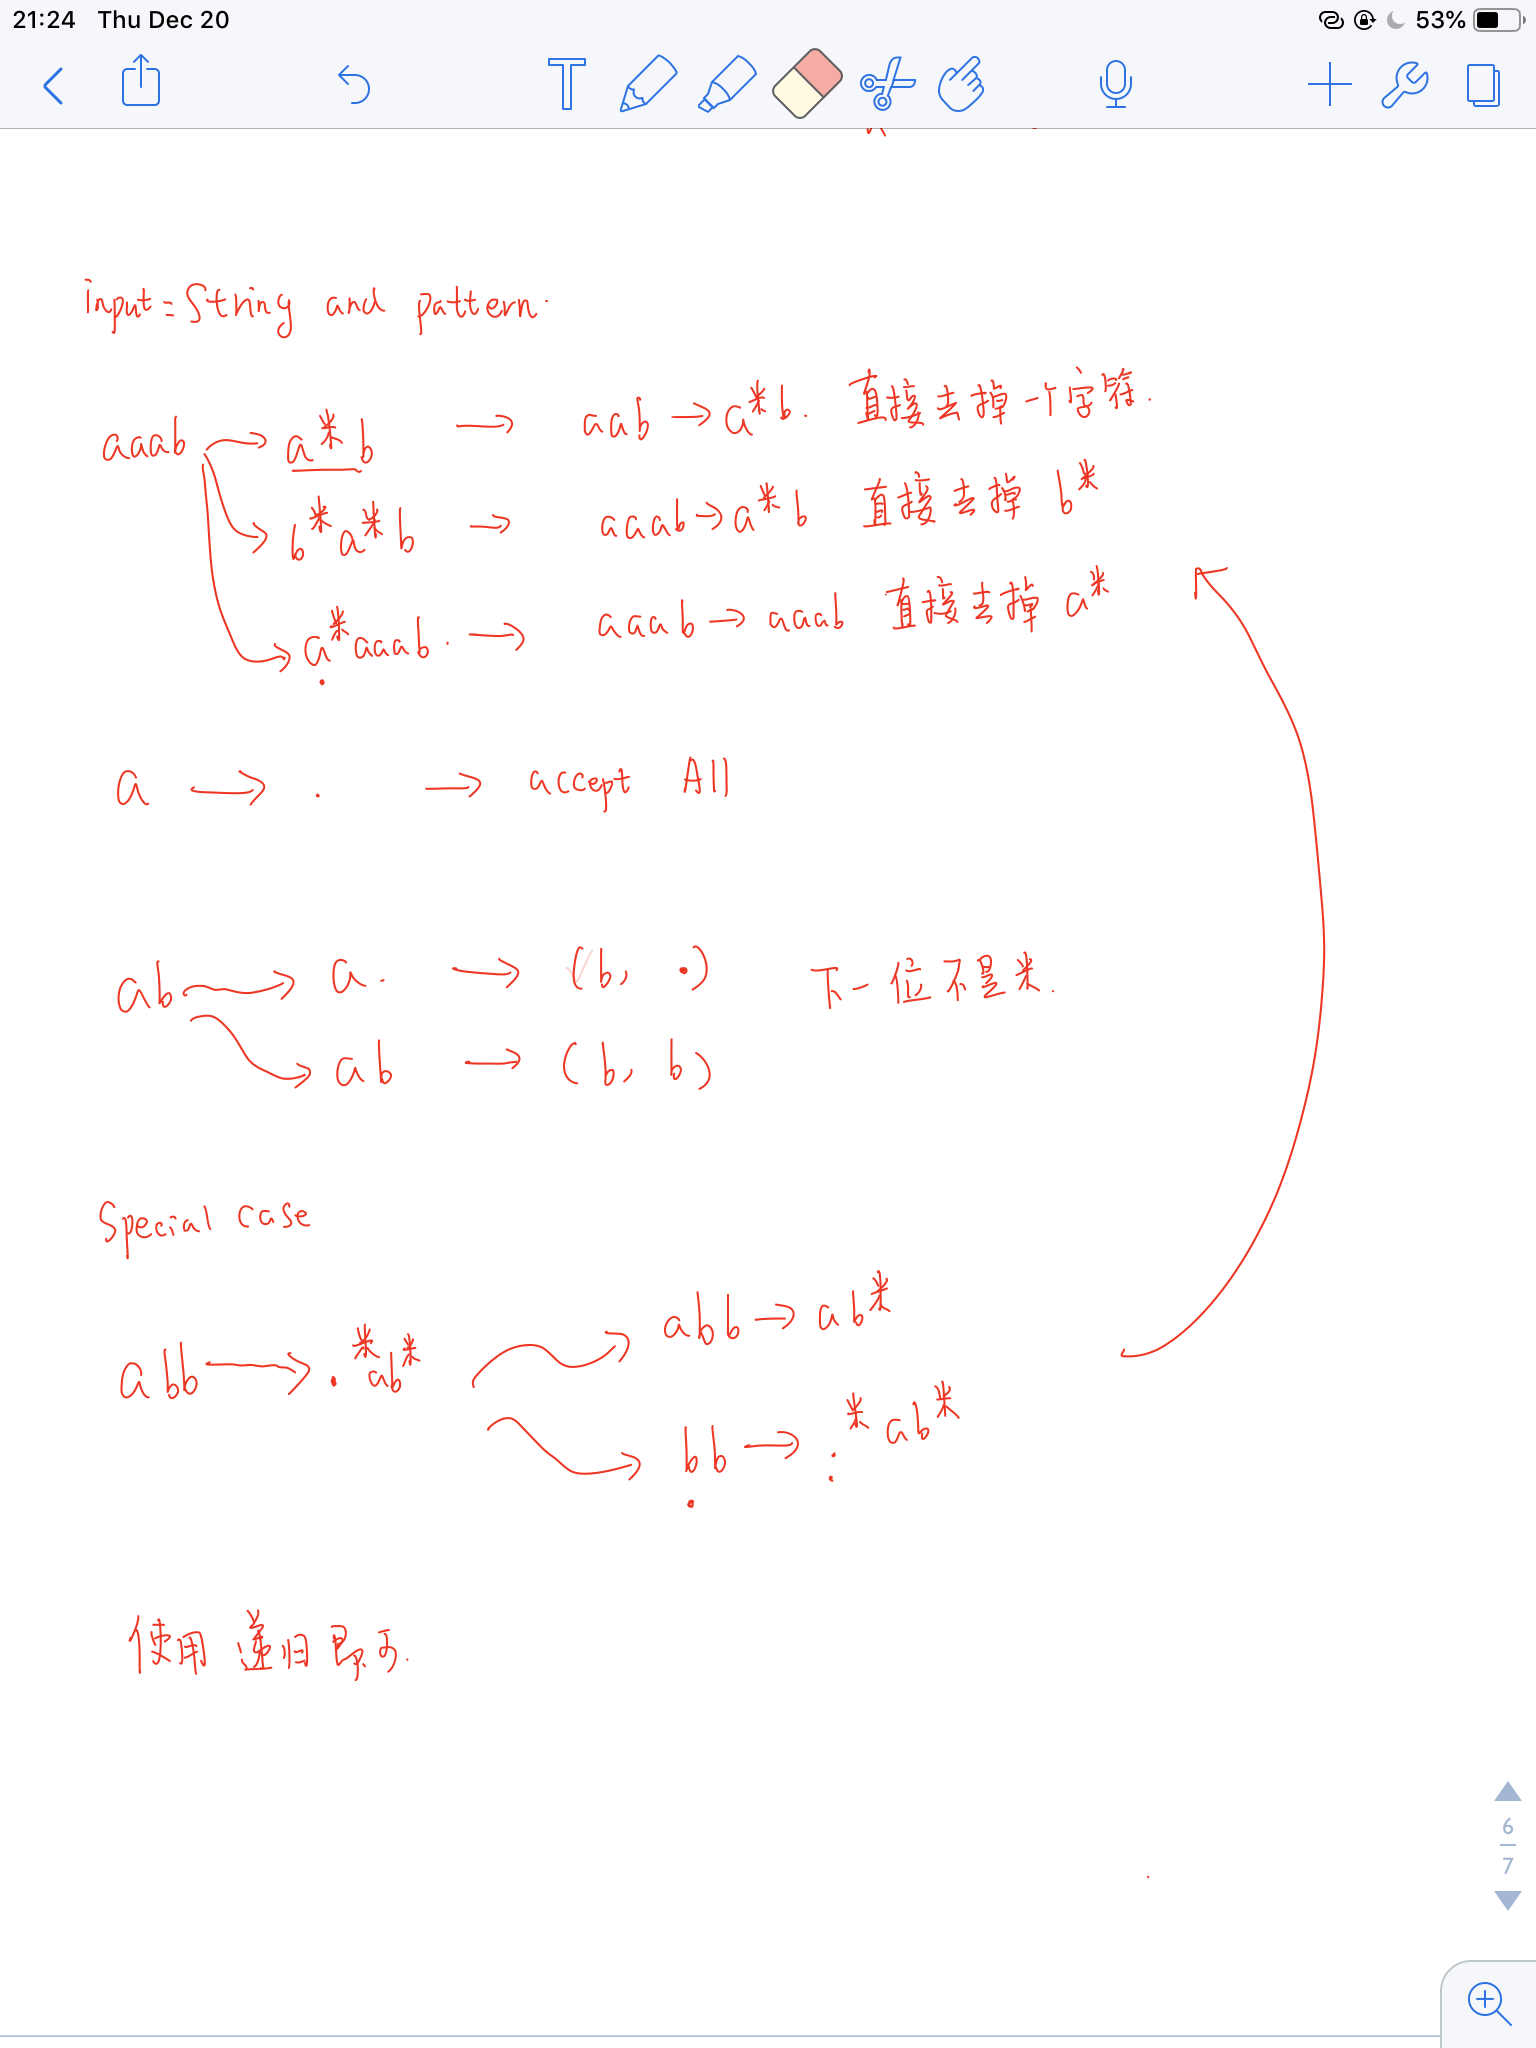 21:24 Thu Dec 20 53%
input = String and pattern.
aaab → a*b → aab → a*b. 直接去掉一个字符.
b*a*b → aaab → a*b 直接去掉 b*
a*aaab. → aaab → aaab 直接去掉 a*
a → . → accept All
ab → a. → (b, .) 下一位不是*.
ab → (b, b)
Special case
abb → .*ab* abb → ab*
bb → .*ab*
使用递归即可.
6
7